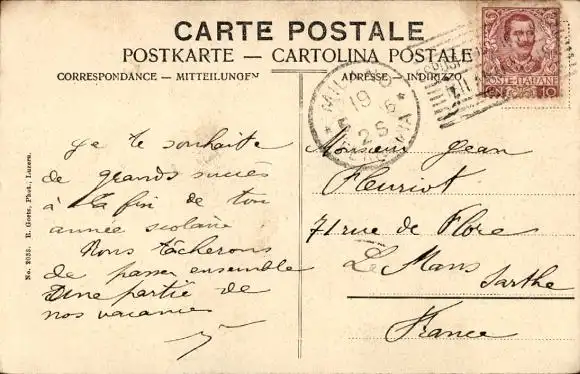 CARTE POSTALE
POSTKARTE – CARTOLINA POSTALE
CORRESPONDANCE – MITTEILUNGEN
ADRESSE – INDIRIZZO
POSTE ITALIANE
10
MILANO
19 5
2 S
FERROVIA
Je te souhaite
de grands succès
à la fin de ton
année scolaire
Nous tâcherons
de passer ensemble
Une partie de
nos vacances
Monsieur Jean
Fleuriot
71 rue de Flore
Le Mans
Sarthe
France
No. 2033. E. Goetz, Phot., Luzern.